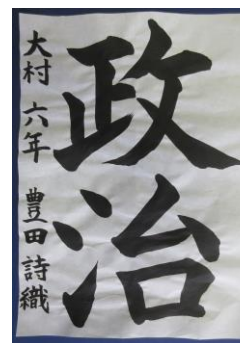 政治
大村 六年 豊田 詩織